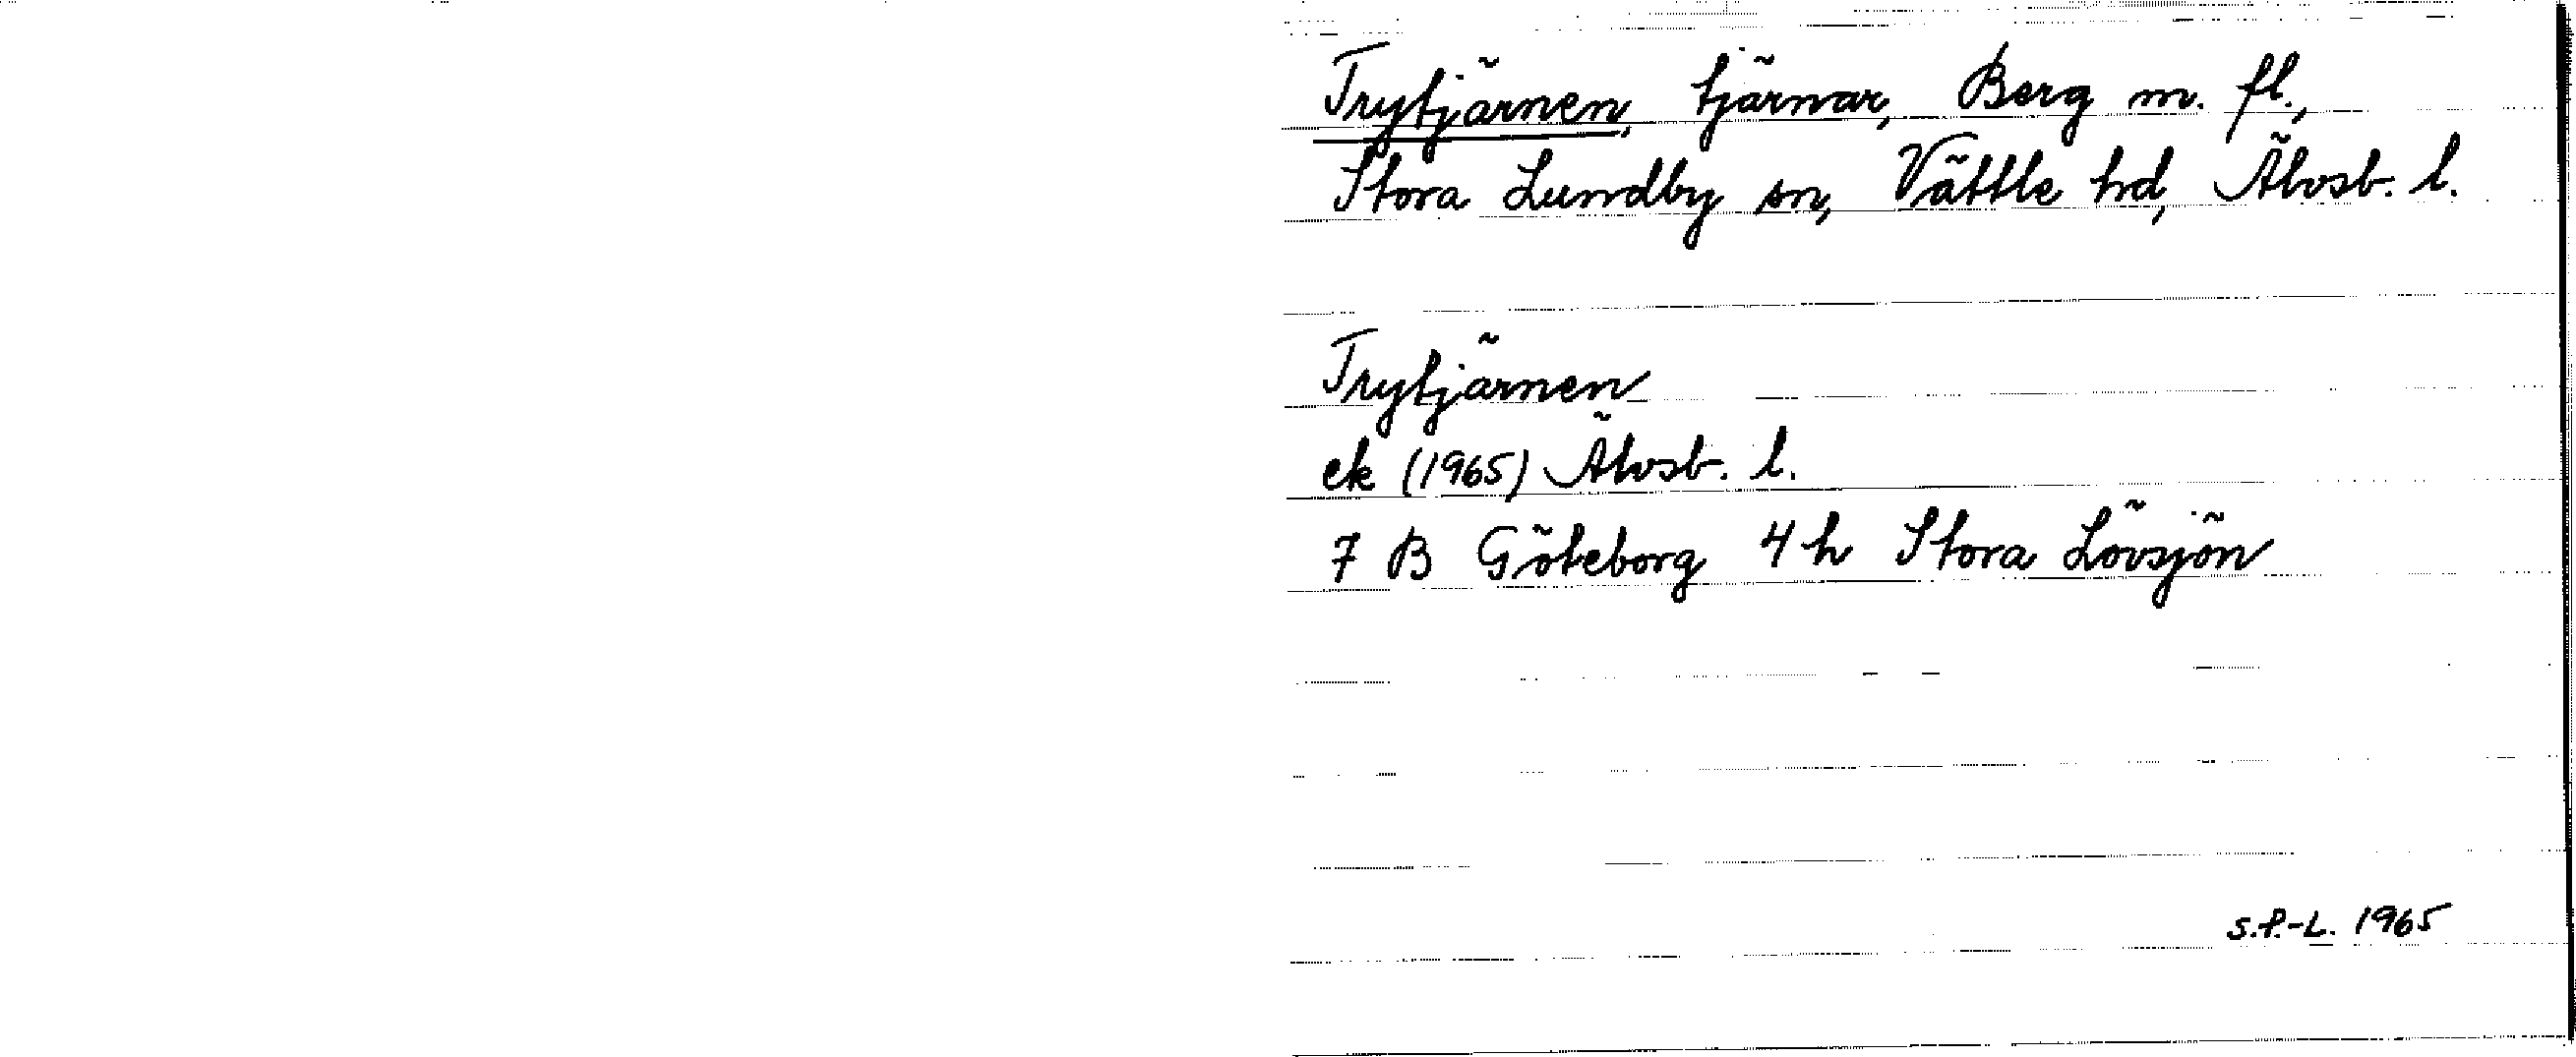 Trytjärnen, tjärnar, Berg m. fl.,
Stora Lundby sn, Vättle hd, Älvsb. l.
Trytjärnen
ek (1965) Älvsb. l.
7 B Göteborg 4 h Stora Lövsjön
S.P.-L. 1965